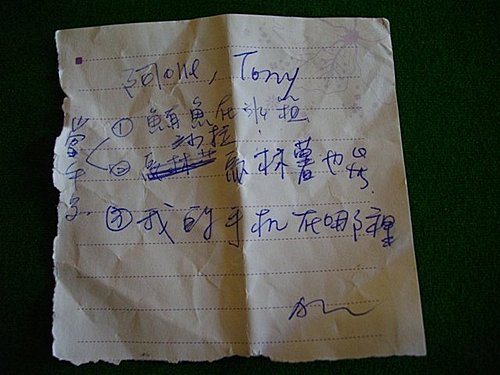 阿one, Tony
① 鮪魚在冰箱
沙拉
② 馬林薯也是
③ 我的手机在哪裡